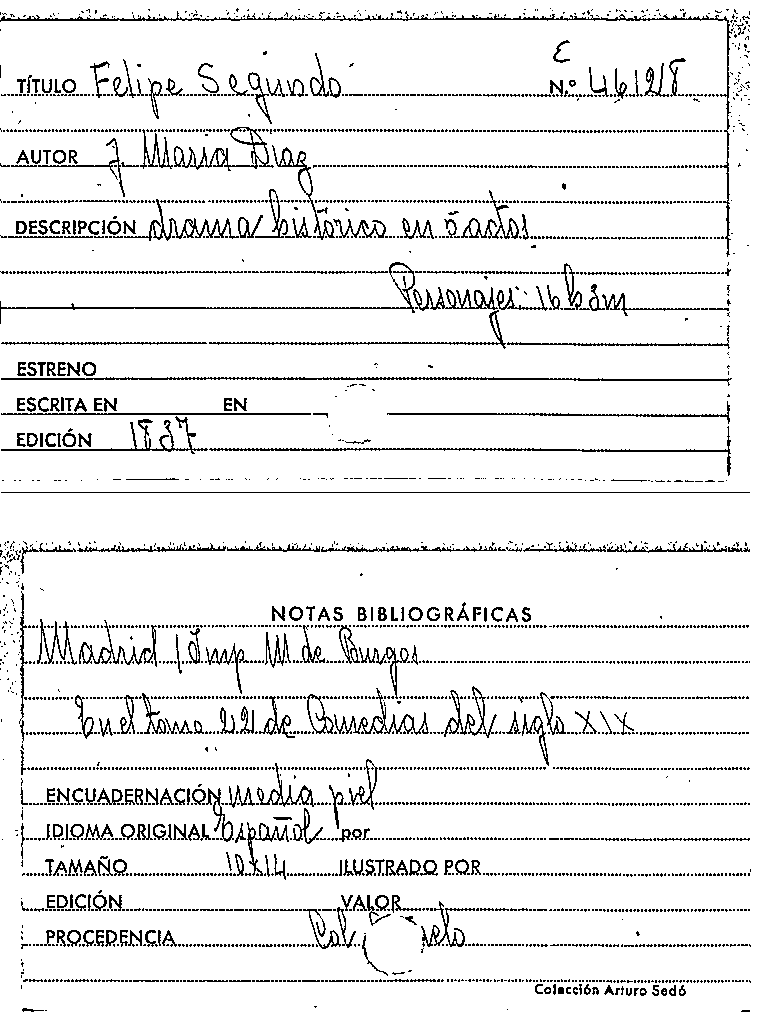 E
TÍTULO Felipe Segundo N.º 46128
AUTOR J. Maria Diaz
DESCRIPCIÓN drama histórico en 5 actos
Personajes: 16 h 3 m
ESTRENO
ESCRITA EN EN
EDICIÓN 1837
NOTAS BIBLIOGRÁFICAS
Madrid / Imp M de Burgos
En el tomo 22 de Comedias del siglo XIX
ENCUADERNACIÓN media piel
IDIOMA ORIGINAL Español por
TAMAÑO 10x14 ILUSTRADO POR
EDICIÓN VALOR
PROCEDENCIA Col
Colección Arturo Sedó